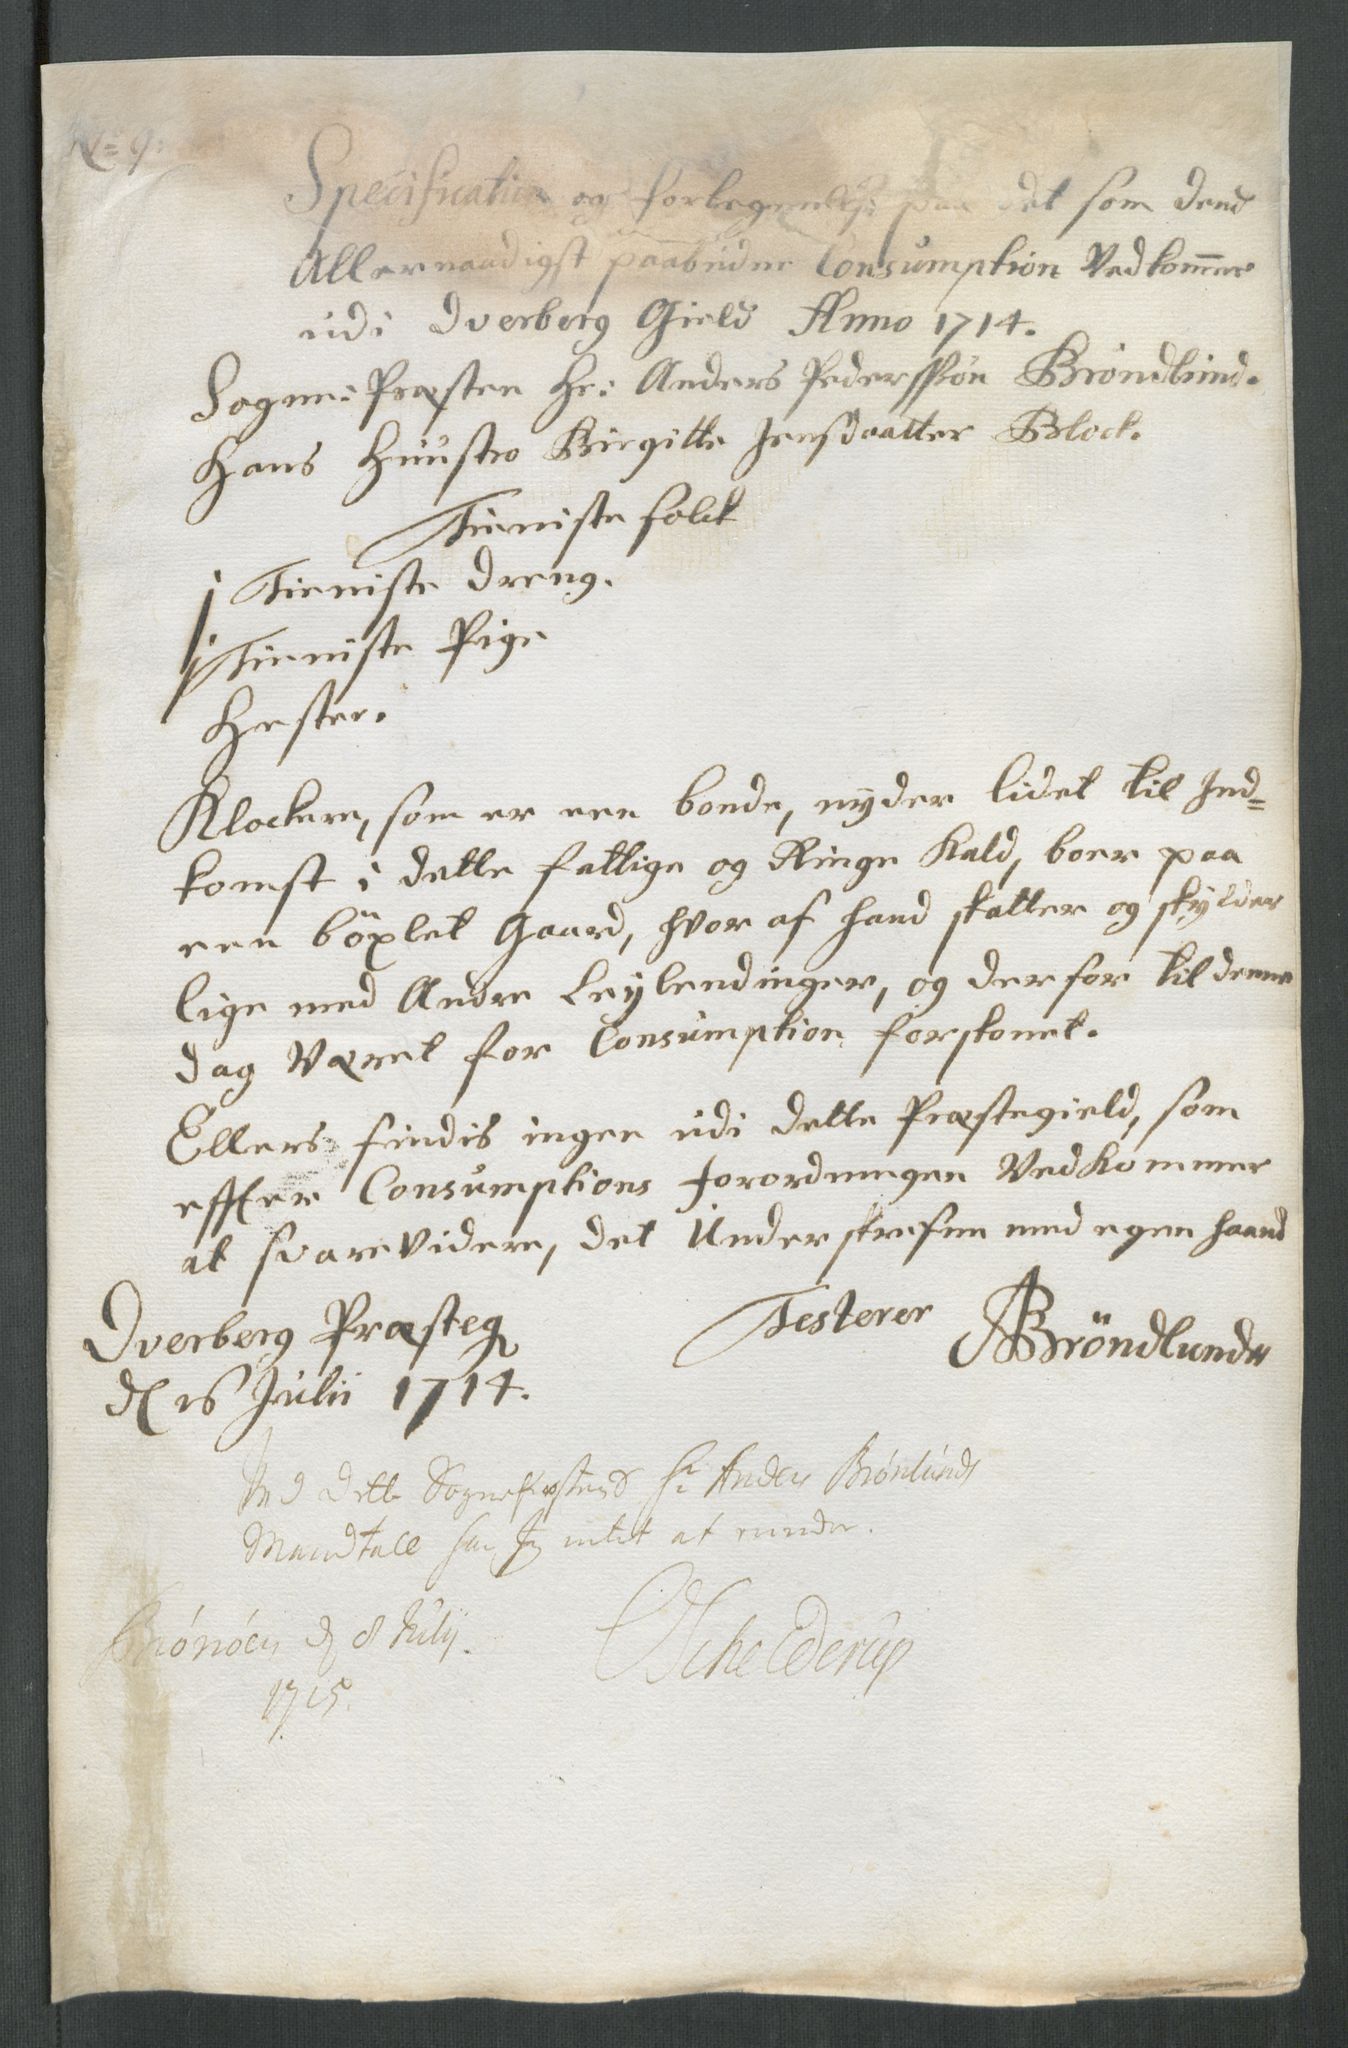 No 9:
Specification og fortegnelse paa det som dend
Allernaadigst paabudne Consumption Vedkommer
udi Dverberg Gield Anno 1714.
Sogne: Præsten Hr: Anders Pedersøn Bröndlund.
Hans Huustro Birgitte Jensdaatter Block.
Tieniste folck
1 Tieniste Dreng.
1 Tieniste Pige
Hester.
Klockere, som er een bonde, nyder lidet til Ind=
komst i dette fattige og Ringe Kald, boer paa
een böxlet Gaard, hvor af hand skatter og skylder
lige med Andre Leylendinger, og derfor til denne
dag Været for Consumption forskonet.
Ellers findis ingen udi dette Præstegield, som
effter Consumptions forordningen Vedkommer
at svare Videre, det Underskrefven med egen haand
Testerer ABröndlund
Dverberg Præsteg
d 16 Julii 1714.
Ved dette Sognepræstens Hr Anders Brönlunds
Mandtall har Jeg intet at minde.
Brönöen d 8 Julij
1715.
Schelderup